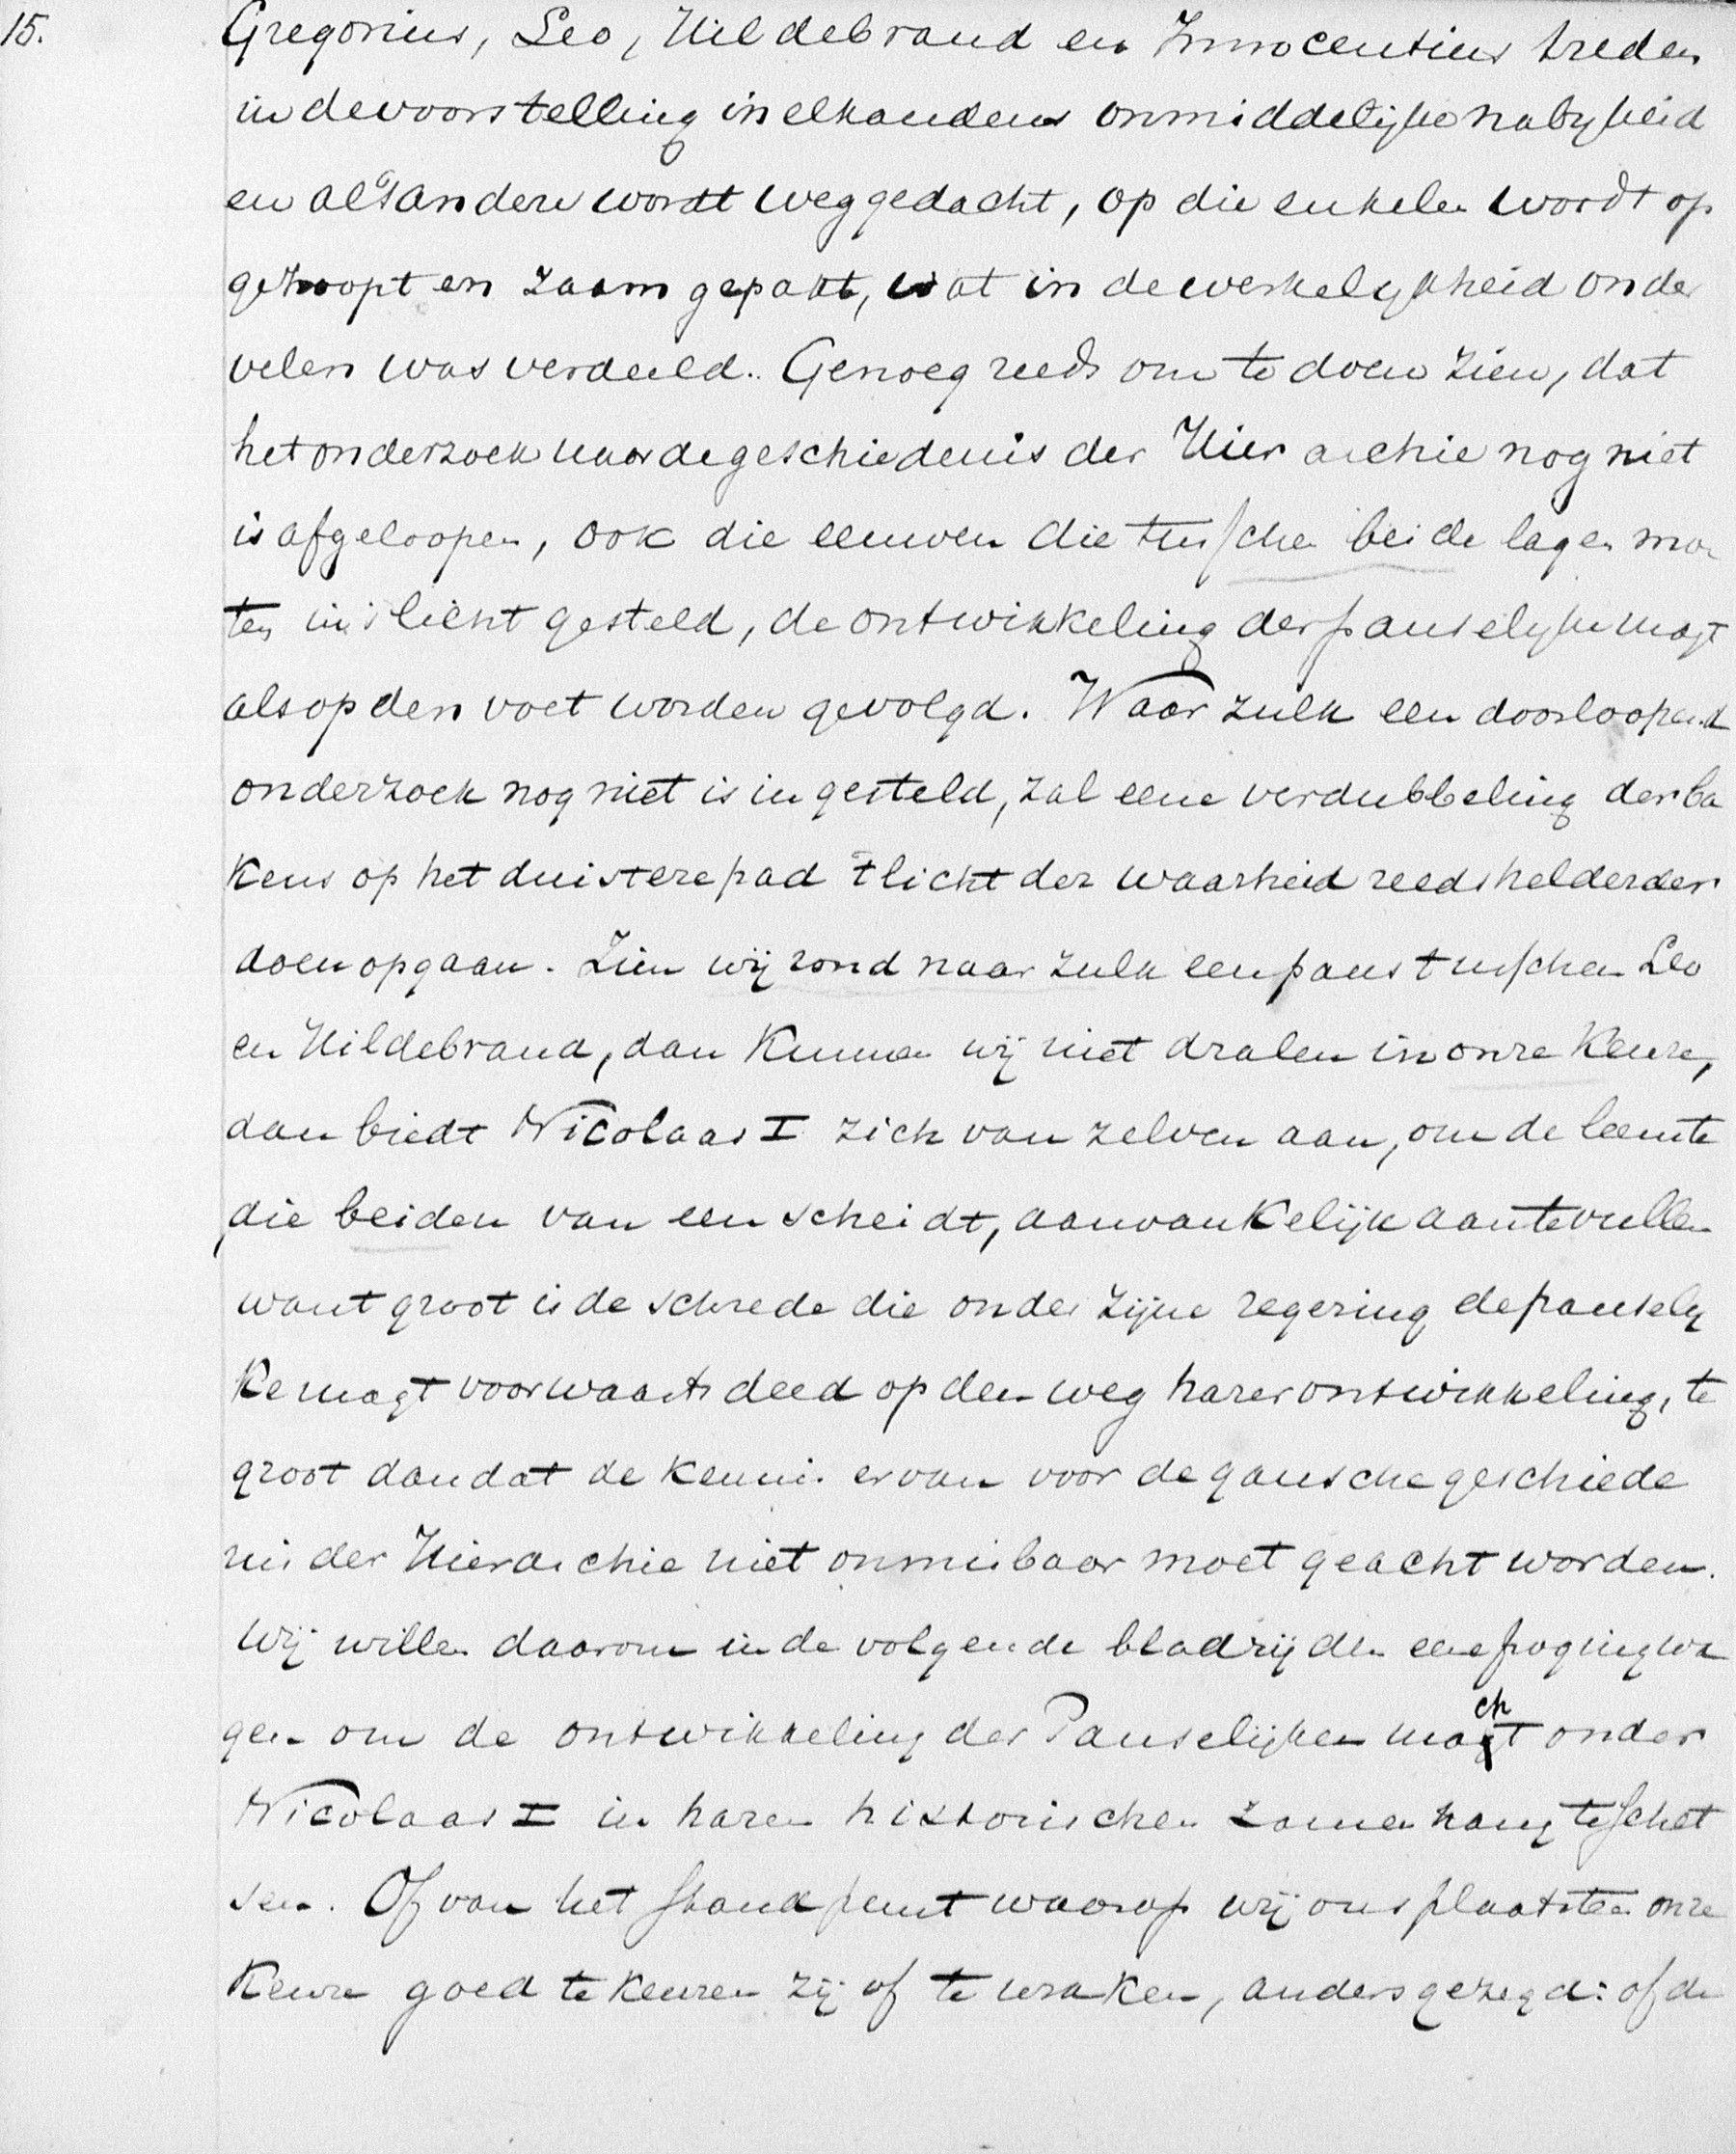 15.
Gregorius, Leo, Hildebrand en Innocentius treden
in de voorstelling in elkanders onmiddelijke nabyheid
en al 't andere wordt weggedacht, op die enkelen wordt op
gehoopt en zaam gepakt, wat in de werkelykheid onder
velen was verdeeld. Genoeg reeds om te doen zien, dat
het onderzoek naar de geschiedenis der Hierarchie nog niet
is afgeloopen, ook die eeuwen die tusschen beide lagen moe
ten in 't licht gesteld, de ontwikkeling der pauselyke magt
als op den voet worden gevolgd. Waar zulk een doorloopend
onderzoek nog niet is ingesteld, zal eene verdubbeling der ba
kens op het duistere pad t licht der waarheid reeds helderder
doen opgaan. Zien wij rond naar zulk een paus tusschen Leo
en Hildebrand, dan kunnen wij niet dralen in onze keuze,
dan biedt Nicolaas I zich van zelven aan, om de leemte
die beiden van een scheidt, aanvankelijk aantevullen
want groot is de schrede die onder zijne regering de pausely
ke magt voorwaarts deed op den weg harer ontwikkeling, te
groot dan dat de kennis ervan voor de gansche geschiede
nis der Hierarchie niet onmisbaar moet geacht worden.
Wij willen daarom in de volgende bladzijden eene poging wa
gen om de ontwikkeling der Pauselijken macht onder
Nicolaas I in haren historischen zamenhang te schet
sen. Of van het standpunt waarop wij ons plaatsten onze
keuze goed te keuren zij of te wraken, anders gezegd: of de